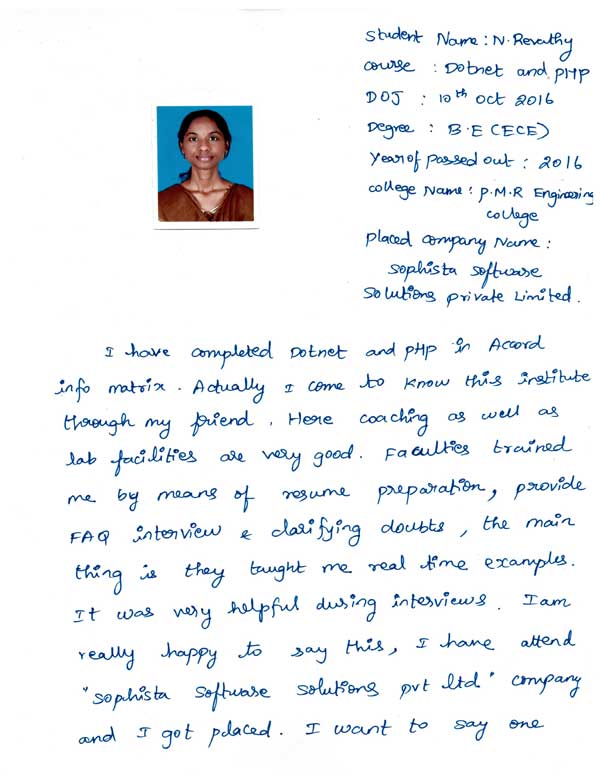 Student Name : N. Revathy
course : Dotnet and PHP
DOJ : 10th oct 2016
Degree : B.E (ECE)
Year of Passed out : 2016
college Name : P.M.R Engineering
college
Placed company Name :
Sophista software
Solutions private Limited.
I have completed Dotnet and PHP in Accord
info matrix. Actually I come to know this institute
through my friend. Here coaching as well as
lab facilities are very good. Faculties trained
me by means of resume preparation, provide
FAQ interview & clarifying doubts, the main
thing is they taught me real time examples.
It was very helpful during interviews. I am
really happy to say this, I have attend
"Sophista software solutions pvt ltd" company
and I got pdaced. I want to say one